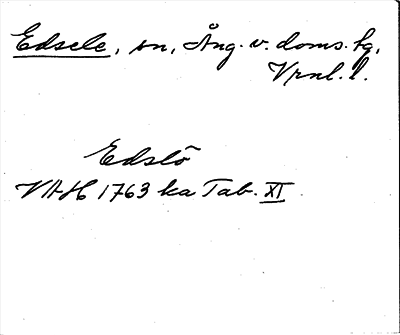 Edsele, sn, Ång. v. doms. fg,
Vrnl. l.
Edslö
VAH 1763 ka Tab. XI